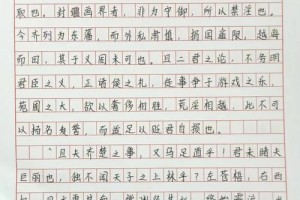 职也。封疆画界者,非为守御,所以禁淫也。
今齐列为东藩,而外私肃慎,捐国逾限,越海
而田,其于义固未可也。且二君之论,不务明
君臣之义,正诸侯之礼,徒事争于游戏之乐,
苑囿之大,欲以奢侈相胜,荒淫相越,此不可
以扬名发誉,而适足以贬君自损也。
“且夫齐楚之事,又乌足道乎!君未睹夫
巨丽也,独不闻天子之上林乎?左苍梧,右西